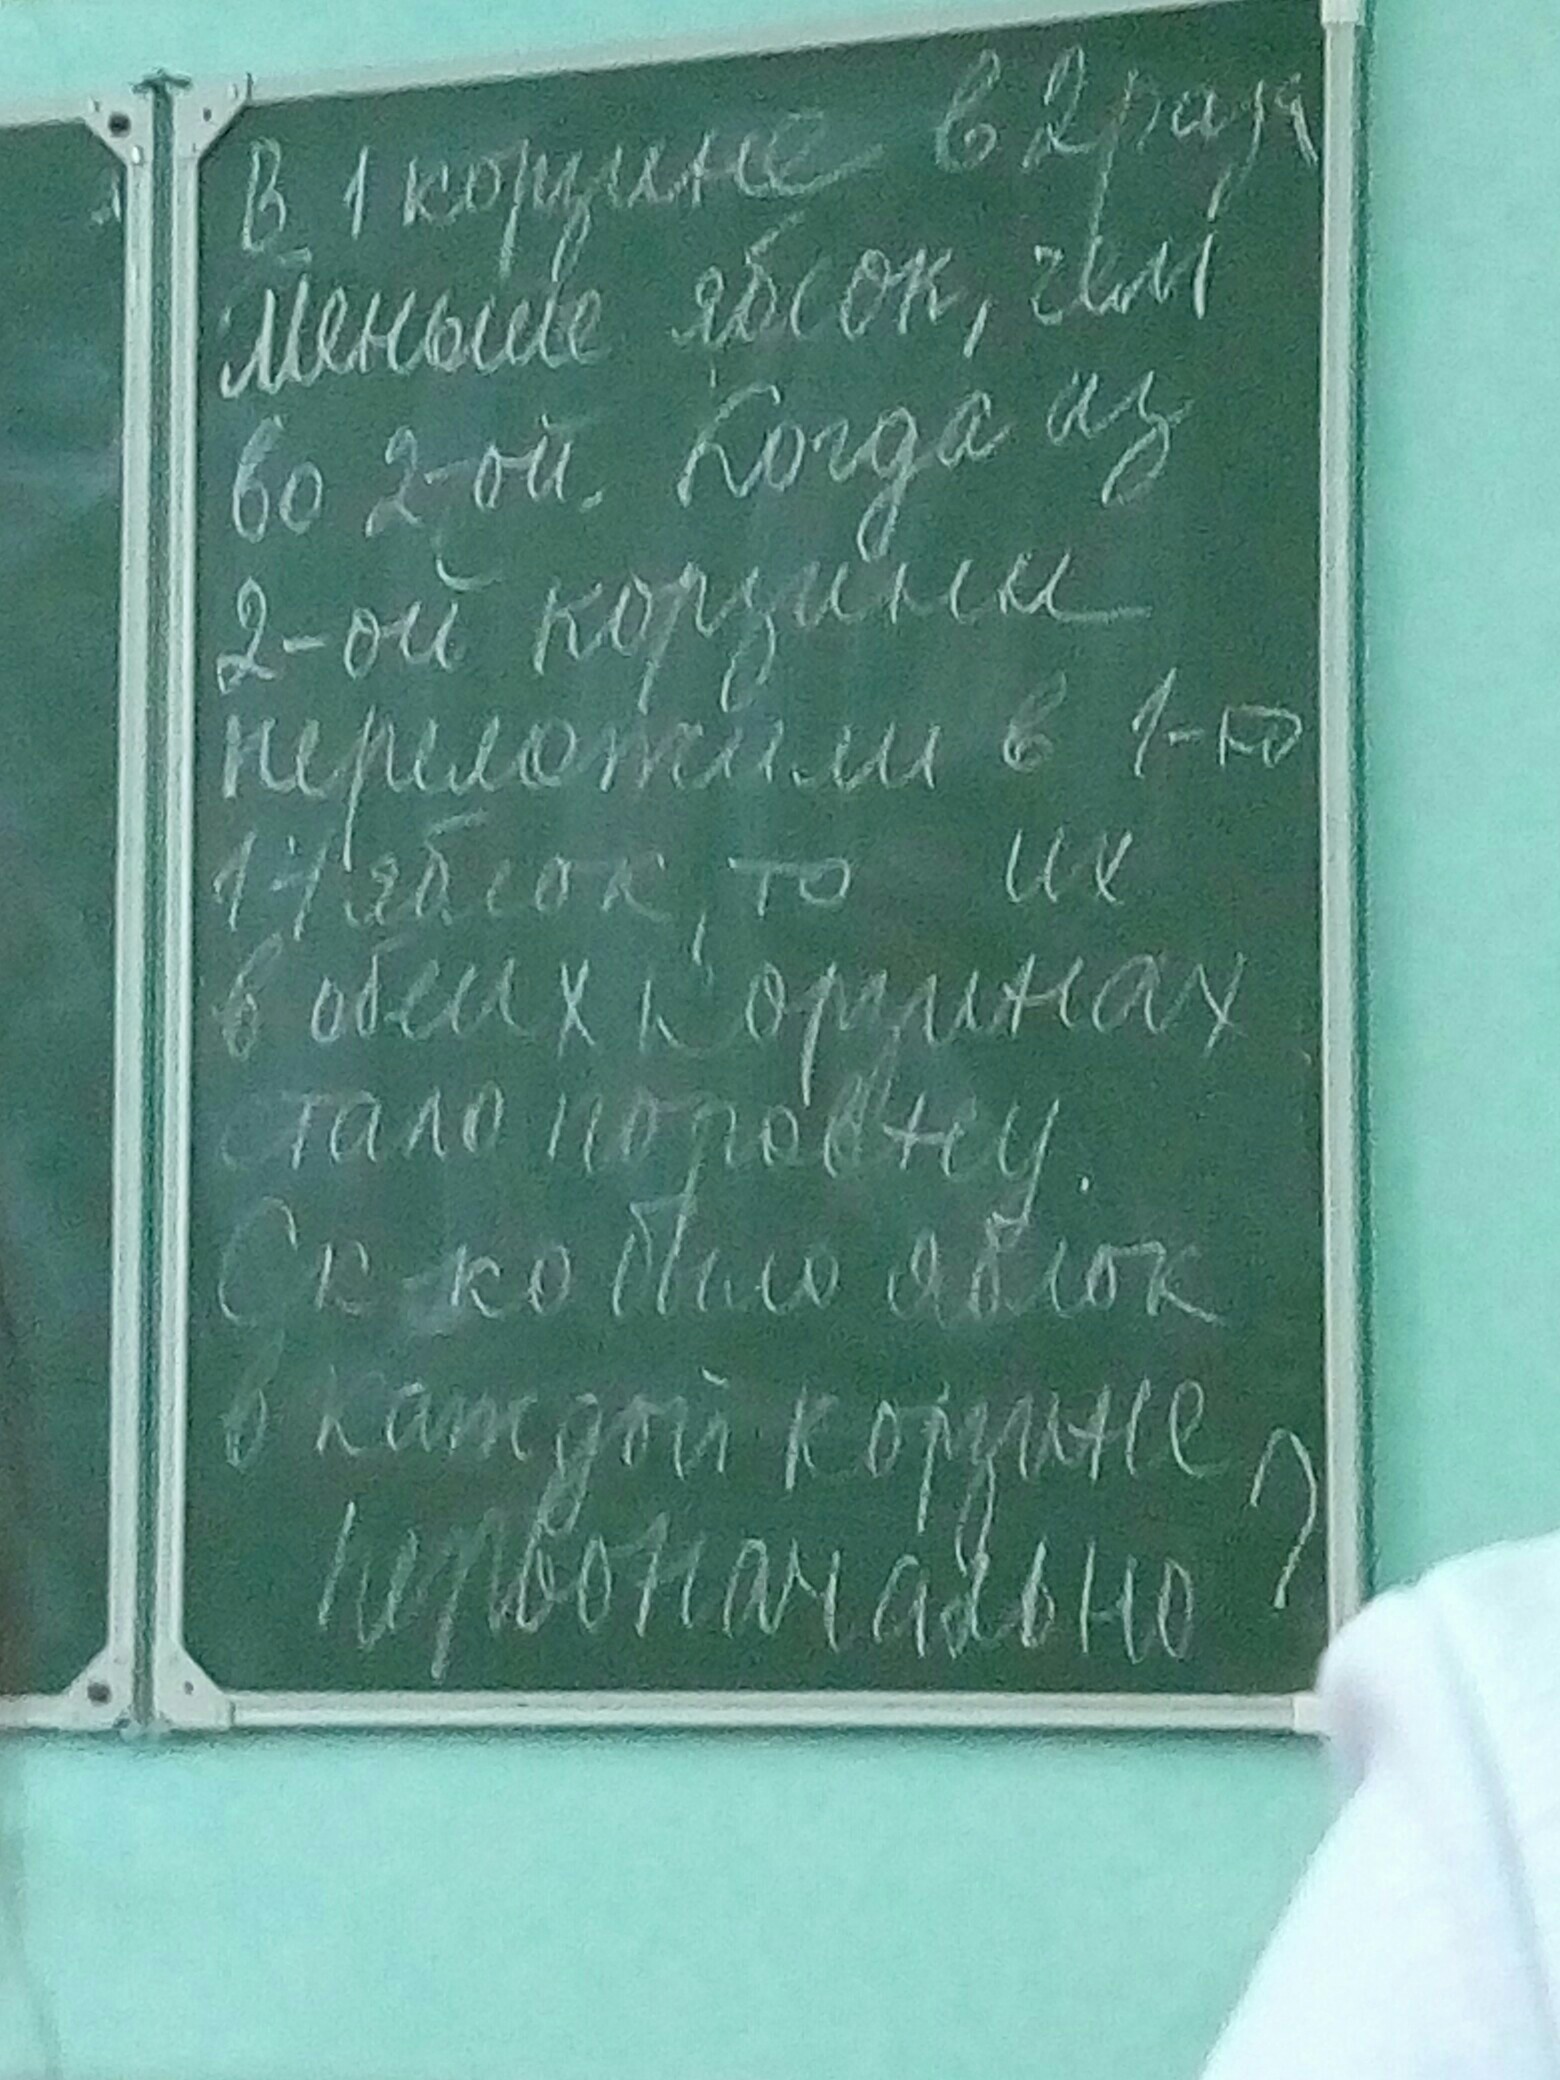 В 1 корзине в 2 раза
меньше яблок, чем
во 2-ой. Когда из
2-ой корзины
переложили в 1-ю
14 яблок, то их
в обеих корзинах
стало поровну.
Ск-ко было яблок
в каждой корзине
первоначально?